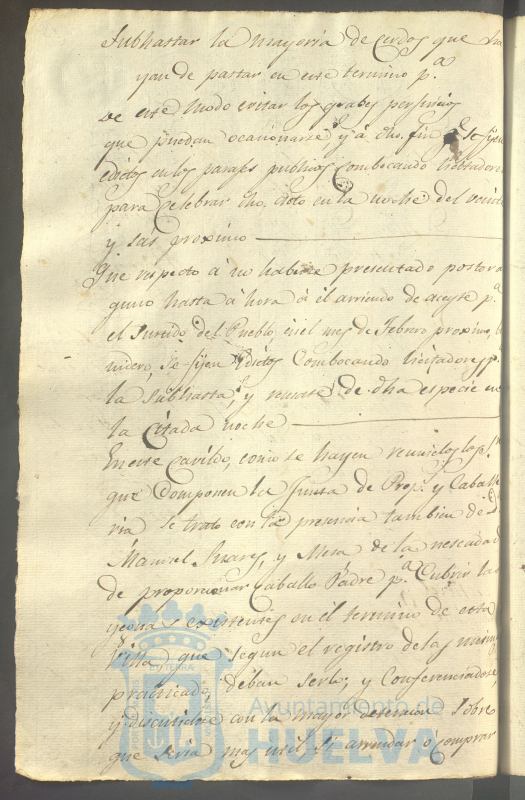 Subhastar la mayoria de Cerdos que ha
yan de pastar en este termino p.ª
de este modo evitar los grabes perjuicios
que puedan ocacionarse y a dho. fin se fijen
edictos en los parajes publicos Combocando licitadores
para Celebrar dho. acto en la noche del veinte
y sais proximo
Que respecto á no haberse presentado postor a
guno hasta á hora á el arriendo de aceyte p.ª
el Surtido del Pueblo, en el mes de Febrero proximo, be
nidero, Se fijen Edictos Combocando licitadores p.ª
la Subhasta, y remate de dha especie en
la Citada noche
En este Cavildo, como se hayen reunidos los
que Componen la Junta de Prop.s y Caballe
ria se trato con la presencia tambien de D.n
Manuel Suares, y Mesa de la nescesidad
de proporcionar Caballo Padre p.ª Cubrir las
yeguas existentes en el termino de esta
Villa que segun el registro de las mismas
practicado, deban serlo; y Conferenciadose,
y discutidose con la mayor detencion Sobre
que seria mas util si arrendar o Comprar
Ayuntamiento de
HUELVA